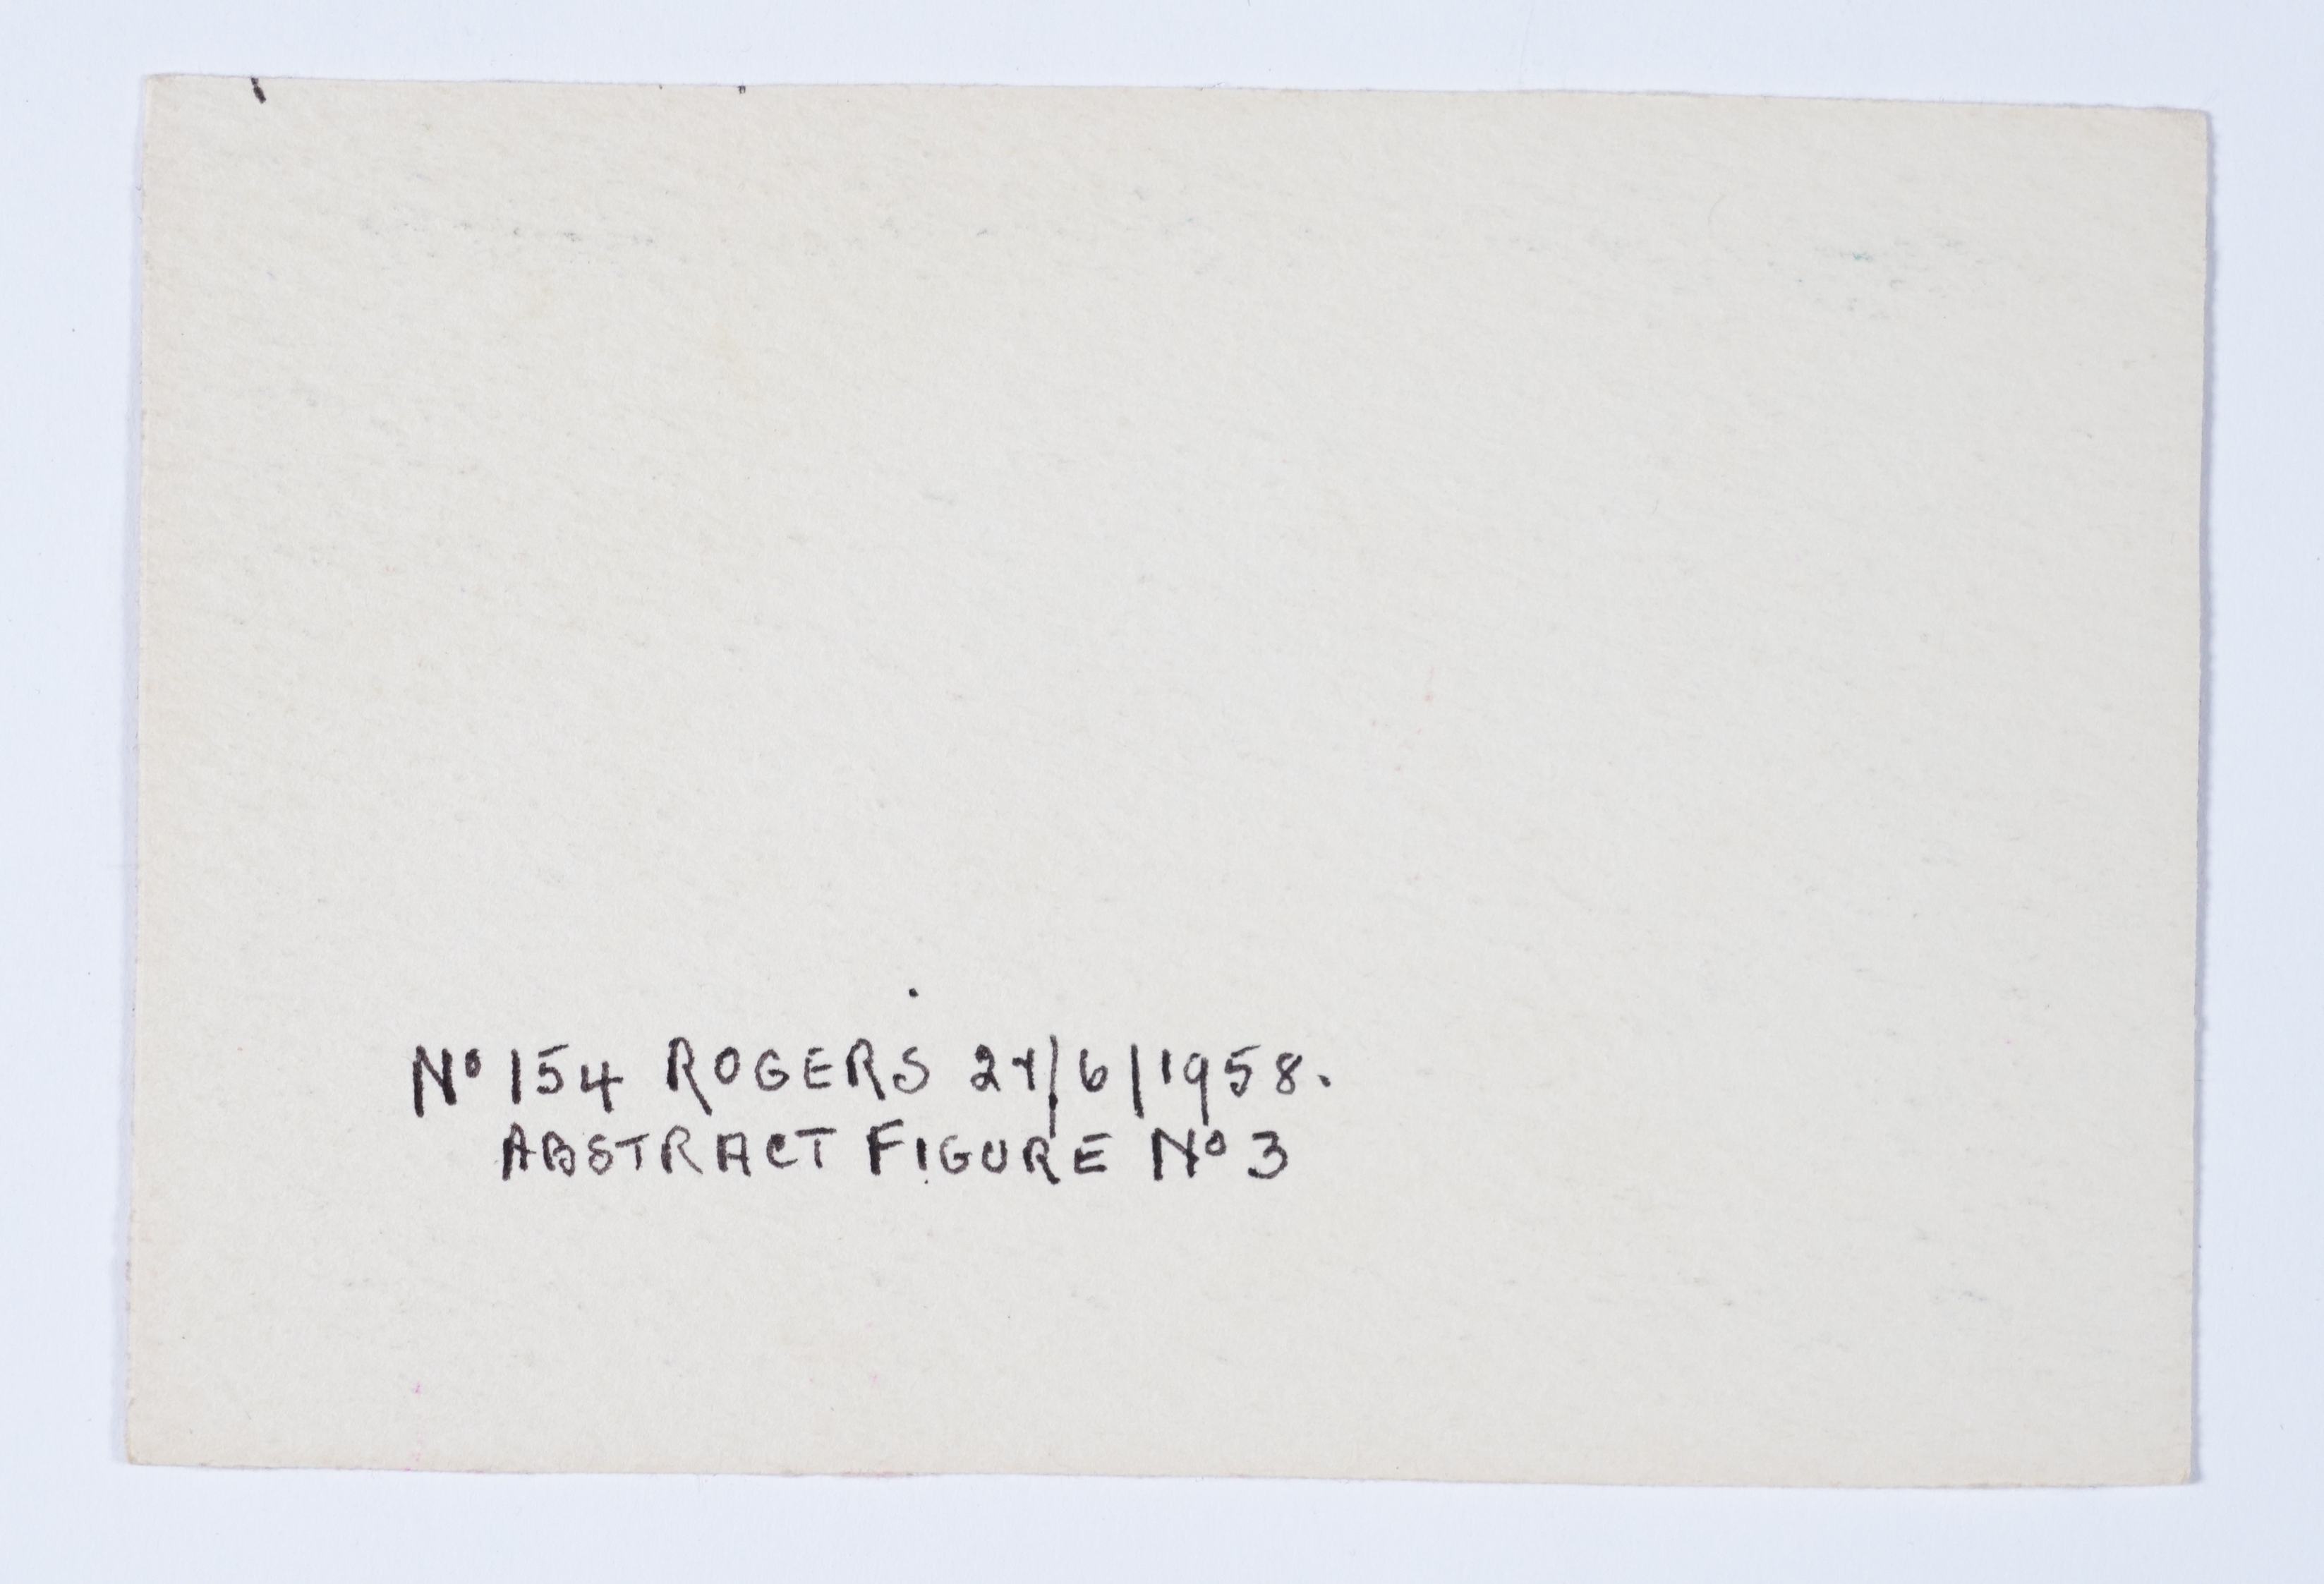 Nº 154 ROGERS 24/6/1958.
ABSTRACT FIGURE Nº 3